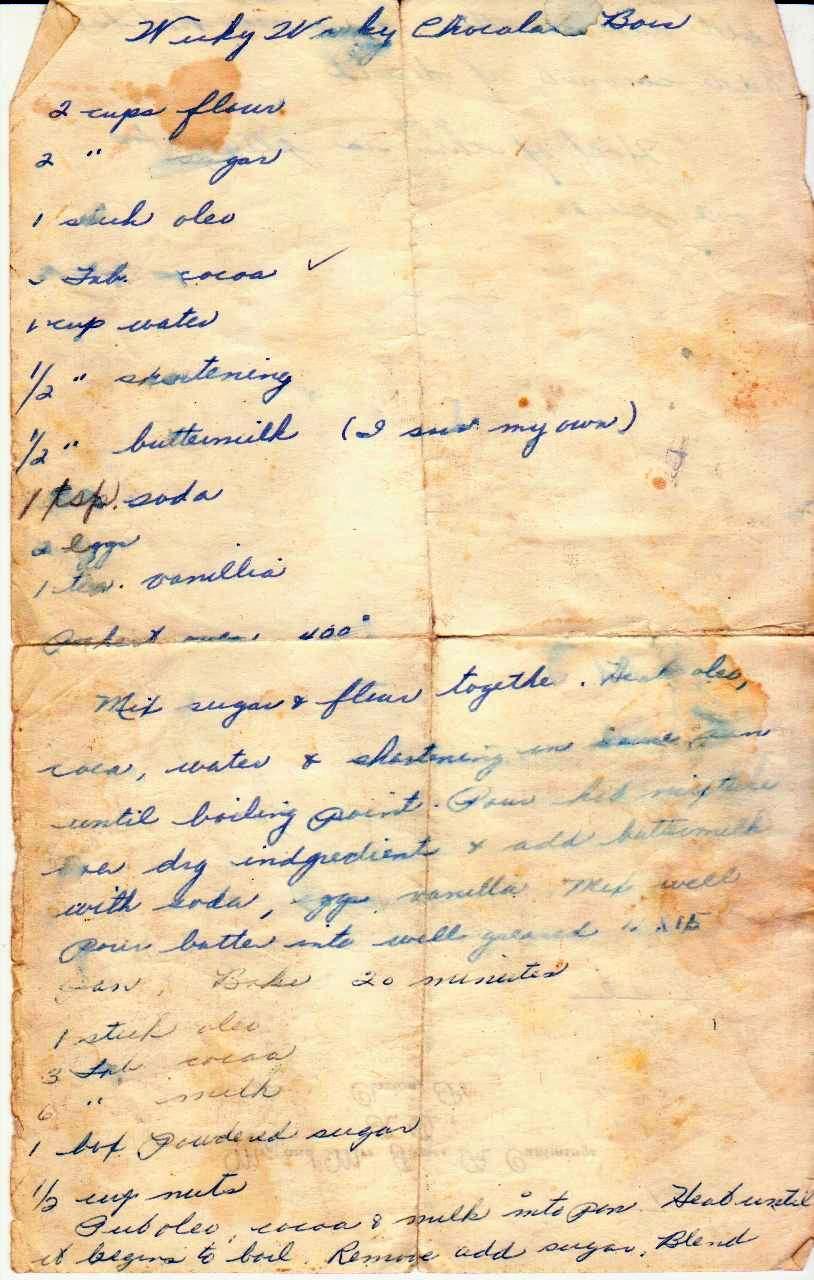 Wicky Wacky Chocolate Bars
2 cups flour
2 " sugar
1 stick oleo
3 Tab. cocoa ✓
1 cup water
1/2 " shortening
1/2 " buttermilk (I sour my own)
1 tsp. soda
2 eggs
1 tea. vanillia
Preheat oven, 400°
Mix sugar & flour together. Heat oleo,
coca, water & shortening in sauce pan
until boiling point. Pour hot mixture
over dry indgredients & add buttermilk
with soda, eggs vanilla. Mix well
pour batter into well greased x 15
pan, Bake 20 minutes
1 stick oleo
3 Tab cocoa
6 " milk
1 box Powdered sugar
1/2 cup nuts
Put oleo, cocoa & milk into pan. Heat until
it begins to boil. Remove add sugar. Blend